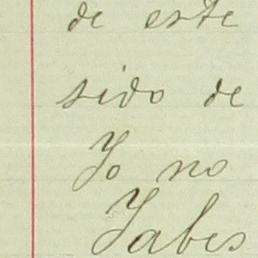 de este
sido de
Yo no
Yabes